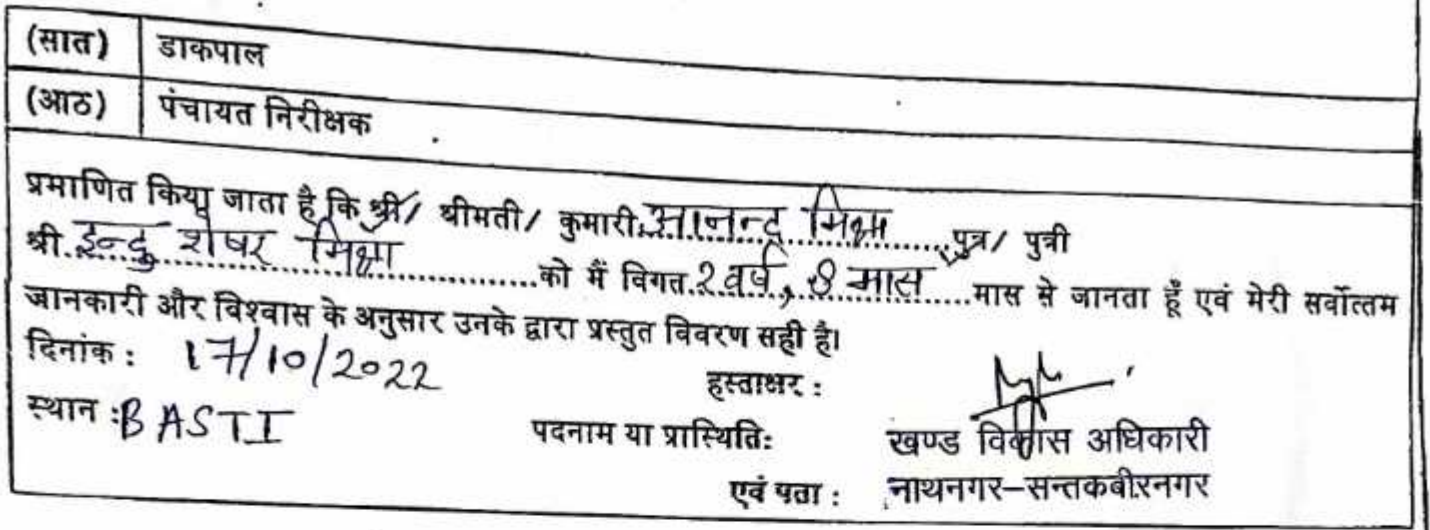 (सात) डाकपाल
(आठ) पंचायत निरीक्षक
प्रमाणित किया जाता है कि श्री/ श्रीमती/ कुमारी.आनन्द मिश्रा.......पुत्र/ पुत्री
श्री.इन्दु शेषर मिश्रा................को मैं विगत.2 वर्ष, 8 मास.......मास से जानता हूँ एवं मेरी सर्वोत्तम
जानकारी और विश्वास के अनुसार उनके द्वारा प्रस्तुत विवरण सही है।
दिनांक : 17/10/2022 हस्ताक्षर :
स्थान : BASTI पदनाम या प्रास्थितिः खण्ड विकास अधिकारी
एवं पता : नाथनगर-सन्तकबीरनगर